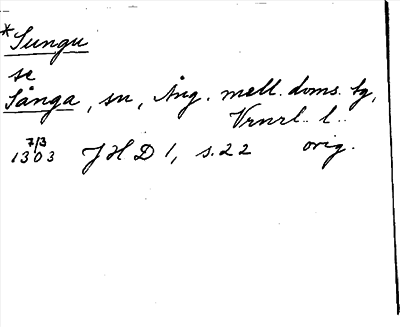 *Sungu
se
Sånga, sn, Ång. mell. doms. bg,
Vrnrl.. l..
7/3
1303 JHD 1, s.22 orig.